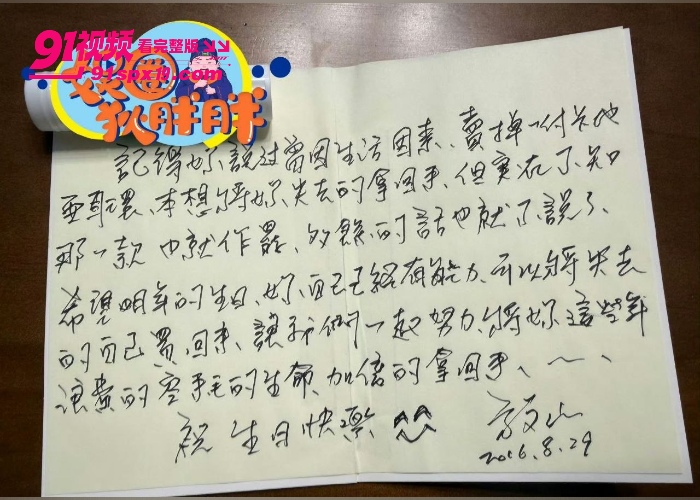 91视频 看完整版
娱圈
狐胖胖
記得妳說過曾因生活因素、賣掉一付卡地
亞耳環、本想將妳失去的拿回來、但實在不知
那一款 也就作罷、多餘的話也就不說了、
希望明年的生日、妳自己已經有能力、可以將失去
的自己買回來、讓我們一起努力、將妳這些年
浪費的 的生命、加倍的拿回來、
祝 生日快樂 ^^
2016.8.29